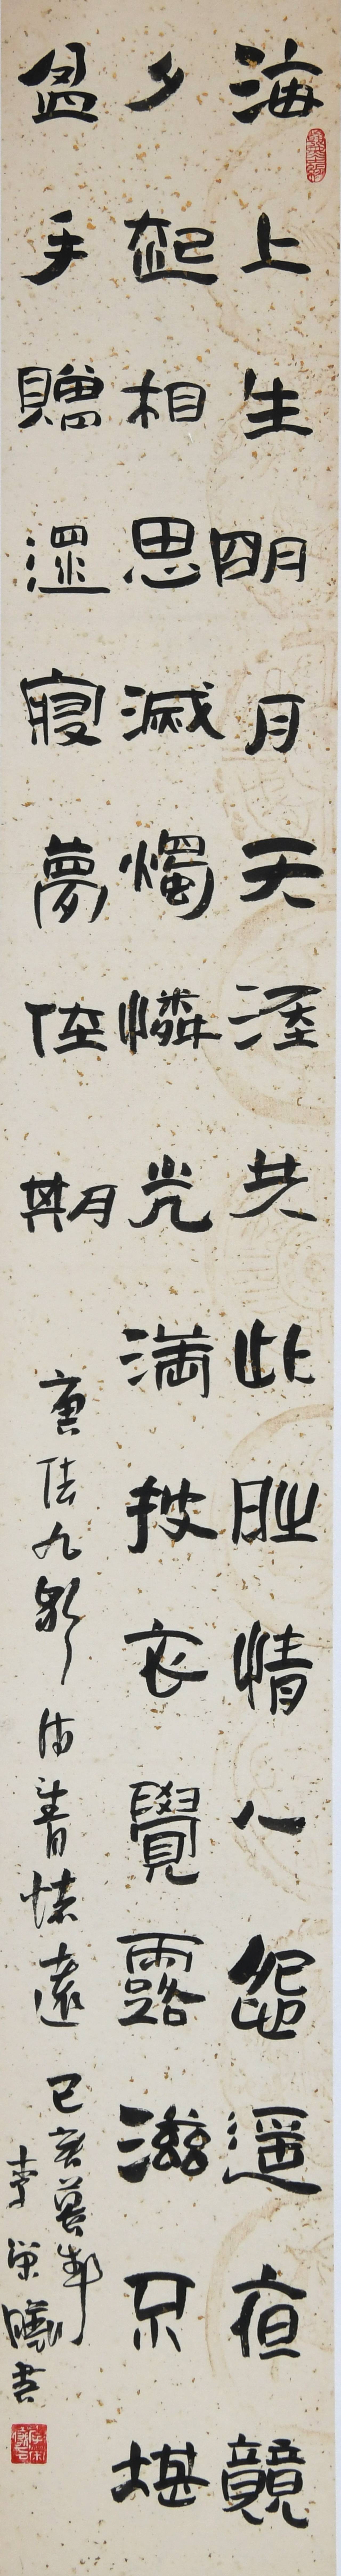 海上生明月天涯共此時情人怨遥夜競
夕起相思滅燭憐光滿披衣覺露滋不堪
盈手贈還寢夢佳期 唐張九齡詩望月懷遠 己亥暮春
李榮曦書